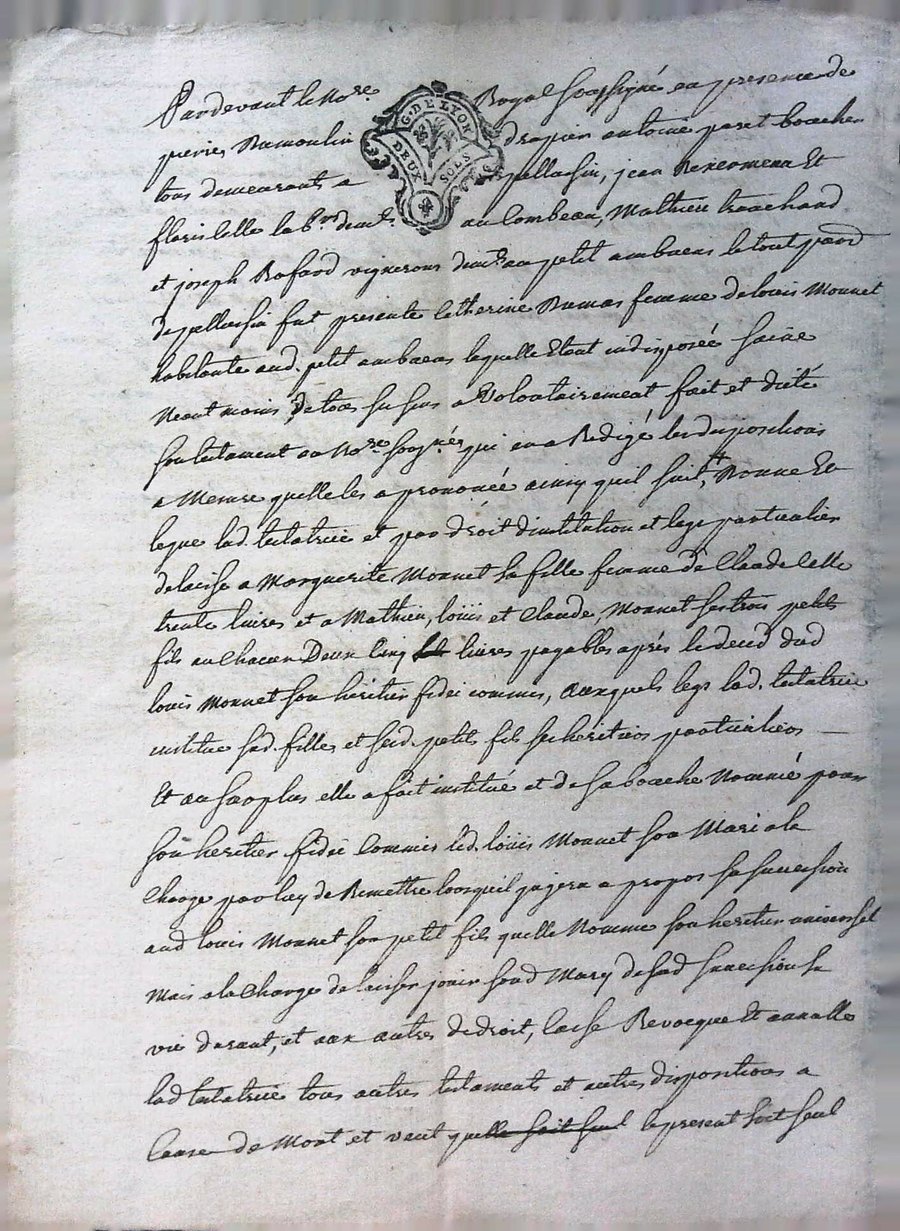 Pardevant le No.re Royal soussigné en presence de
pierre Dumoulin drapier antoine paret boucher
tous demeurants a pellussin, jean
G. DE LYON
DEUX SOLS
floris Celle lab.r dem.t au Combeau, Mathieu trouchard
et joseph Rafard vignerons dem.t au petit ambuens le tout par.
de pellussin fut presente Catherine Dumas femme de louis Monnet
habitante aud. petit ambuens laquelle Etant indisposée saine
Neant moins de tous su sens a Volontairement fait et dicté
son testament au No.re sousg.né qui en a Redigé les dispositions
a Mesure quelle les a prononcé ainsy quil suit, Donne Et
legue lad. testatrice et par droit dinstitution et legs particulier
delaisse a Marguerite Monnet sa fille femme de Claude Celle
trente livres et a Mathieu, loüis et Claude, Monnet ses trois petits
fils au Chacun Deux Cinq livres payables aprés le deced dud
loüis Monnet son heritier fidei commis, auxquels legs lad. testatrice
institue sad. filles et sesd. petits fils ses heritiers particuliers
Et au surplus elle a fait institué et de sa bouche Nommé pour
son heritier fidei Commis led. loüis Monnet son Mari a la
Charge par luy de Remettre lorsquil jugera a propos sa succession
aud louis Monnet son petit fils quelle Nomme son heritier universel
Mais a la Charge de laisser jouir sond Mary de sad succession sa
vie durant, et aux autres de droit, Casse Revocque Et annulle
lad testatrice tous autres testaments et autres dispositions a
Cause de Mort et veut quelle soit seul le present soit seul